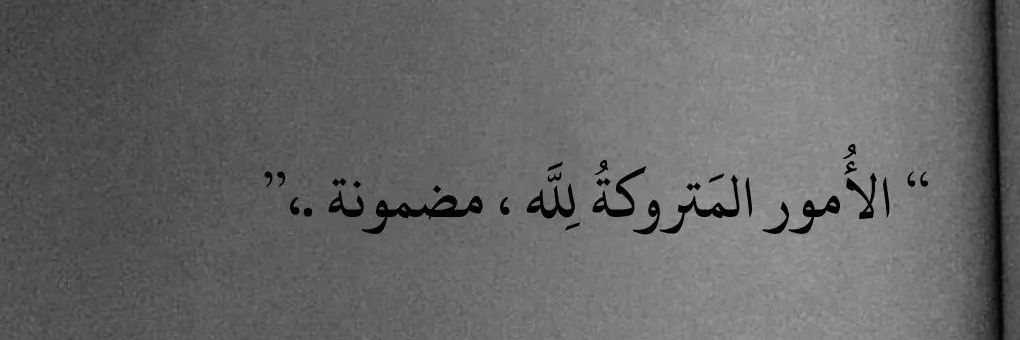 “ الأُمور المَتروكةُ لِلَّه ، مضمونة .،”